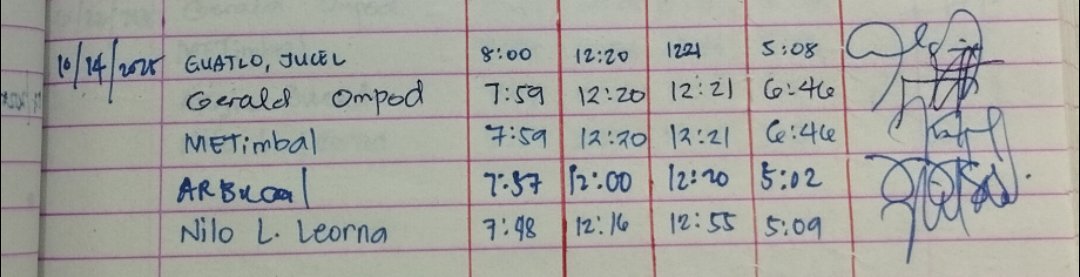 10/14/2025 GUATLO, JUCEL 8:00 12:20 1221 5:08
Gerald Ompod 7:59 12:20 12:21 6:46
METimbal 7:59 12:20 12:21 6:46
ARBucal 7:57 12:00 12:20 5:02
Nilo L. Leorna 7:48 12:16 12:55 5:09